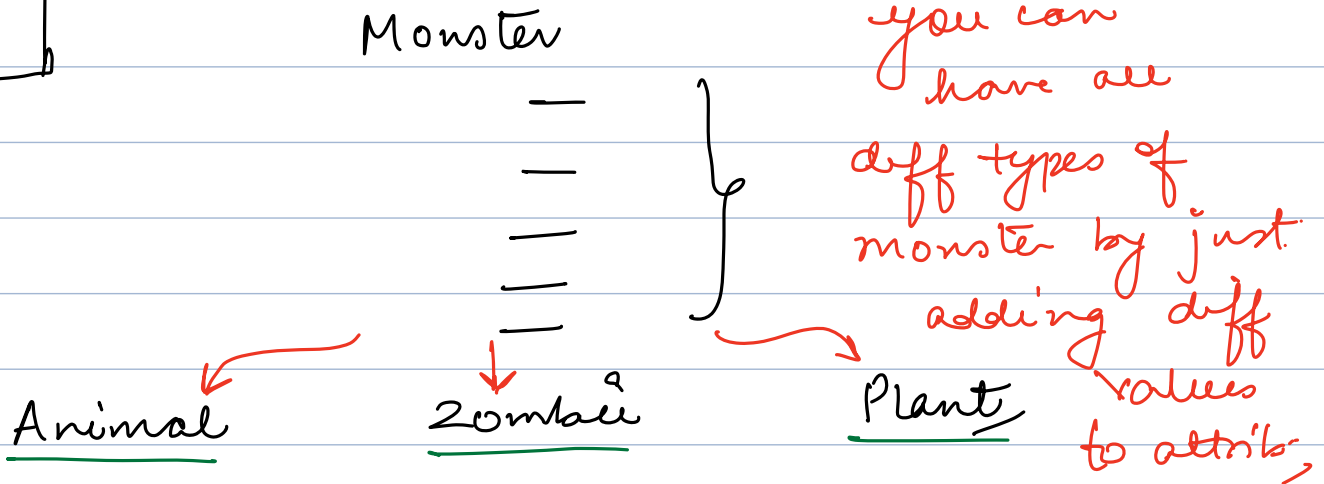 Monster
you can
have all
diff types of
monster by just
adding diff
values
to attrib
Animal
Zombie
Plant